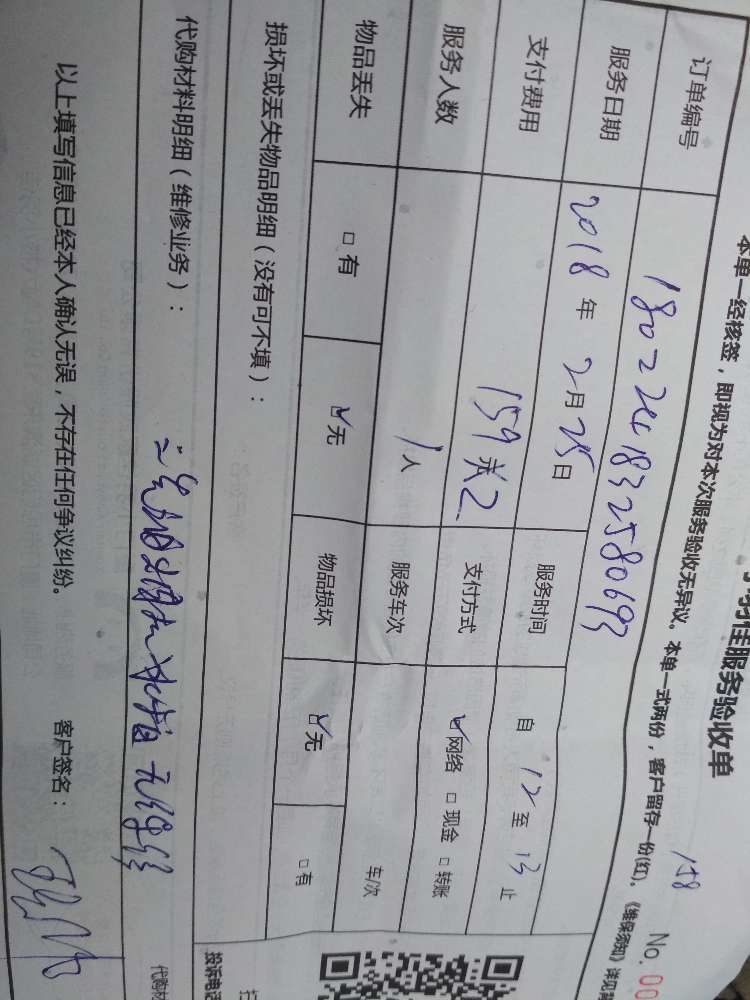 佳服务验收单
No. 00
158
本单一经核签，即视为对本次服务验收无异议。本单一式两份，客户留存一份(红)，《维保须知》详见背
订单编号 180224183258069
服务日期 2018年2月25日 服务时间 自12至13止
支付费用 159元×2 支付方式 ☑网络 □现金 □转账
服务人数 1人 服务车次 车/次
物品丢失 □有 ☑无 物品损坏 ☑无 □有
损坏或丢失物品明细（没有可不填）：
代购材料明细（维修业务）：
以上填写信息已经本人确认无误，不存在任何争议纠纷。 客户签名：
投诉电话
代购材